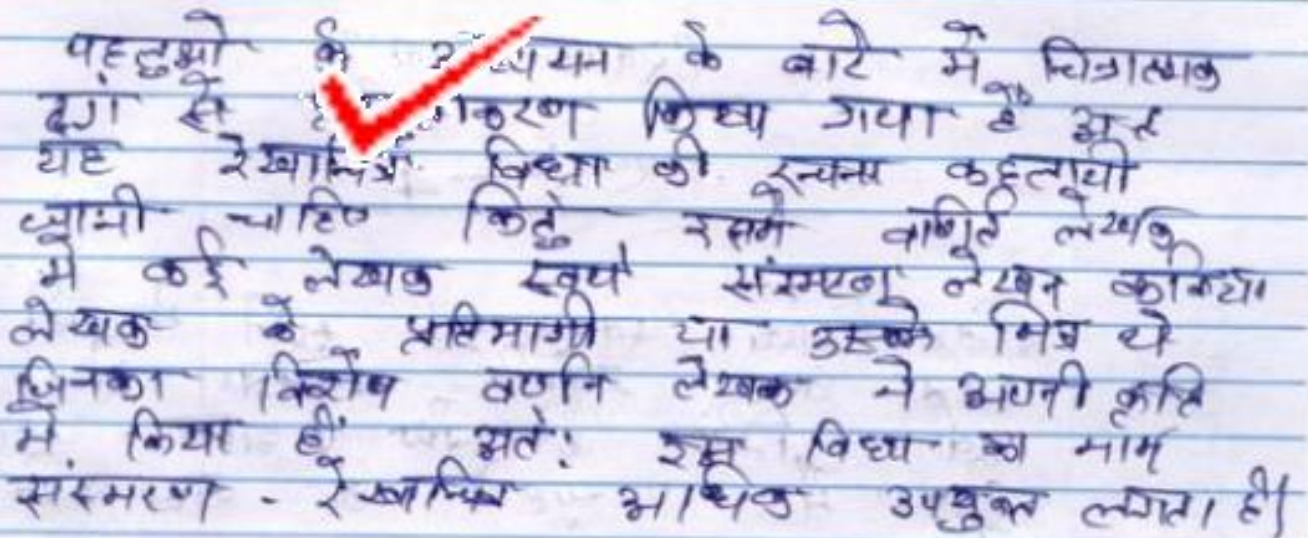 पहलुओ के अध्ययन के बारे में चित्रात्मक
ढंग से किया गया है अतः
यह रेखाचित्र विधा की रचना कहलायी
जानी चाहिए किंतु इसमे वर्णित लेखक
मे कई लेखक स्वयं संस्मरण लेखन
लेखक के प्रतिभागी या उसके मित्र थे
जिनका विशेष वर्णन लेखक ने अपनी कृति
में किया है। अतः इस विधा का नाम
संस्मरण - रेखाचित्र अधिक उपयुक्त लगता है।